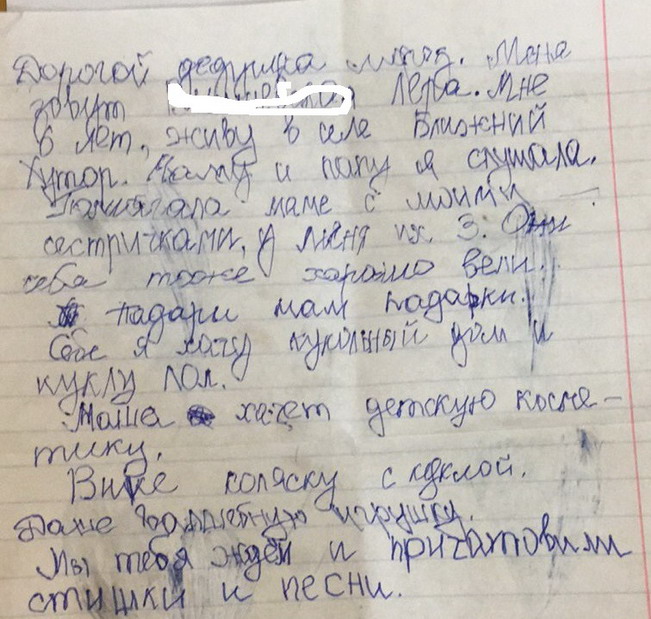 Дорогой дедушка мароз. Меня
зовут Лера. Мне
6 лет, живу в селе Ближний
Хутор. Маму и папу я слушала.
Памагала маме с моими
сестричками, у меня их 3. Они
себа тоже харошо вели.
падари нам падарки.
Себе я хачу кукольный дом и
куклу лол.
Маша хачет детскую косме-
тику.
Вике коляску с куклой.
Даше волшебную игрушку.
Мы тебя ждём и пригатовили
стишки и песни.